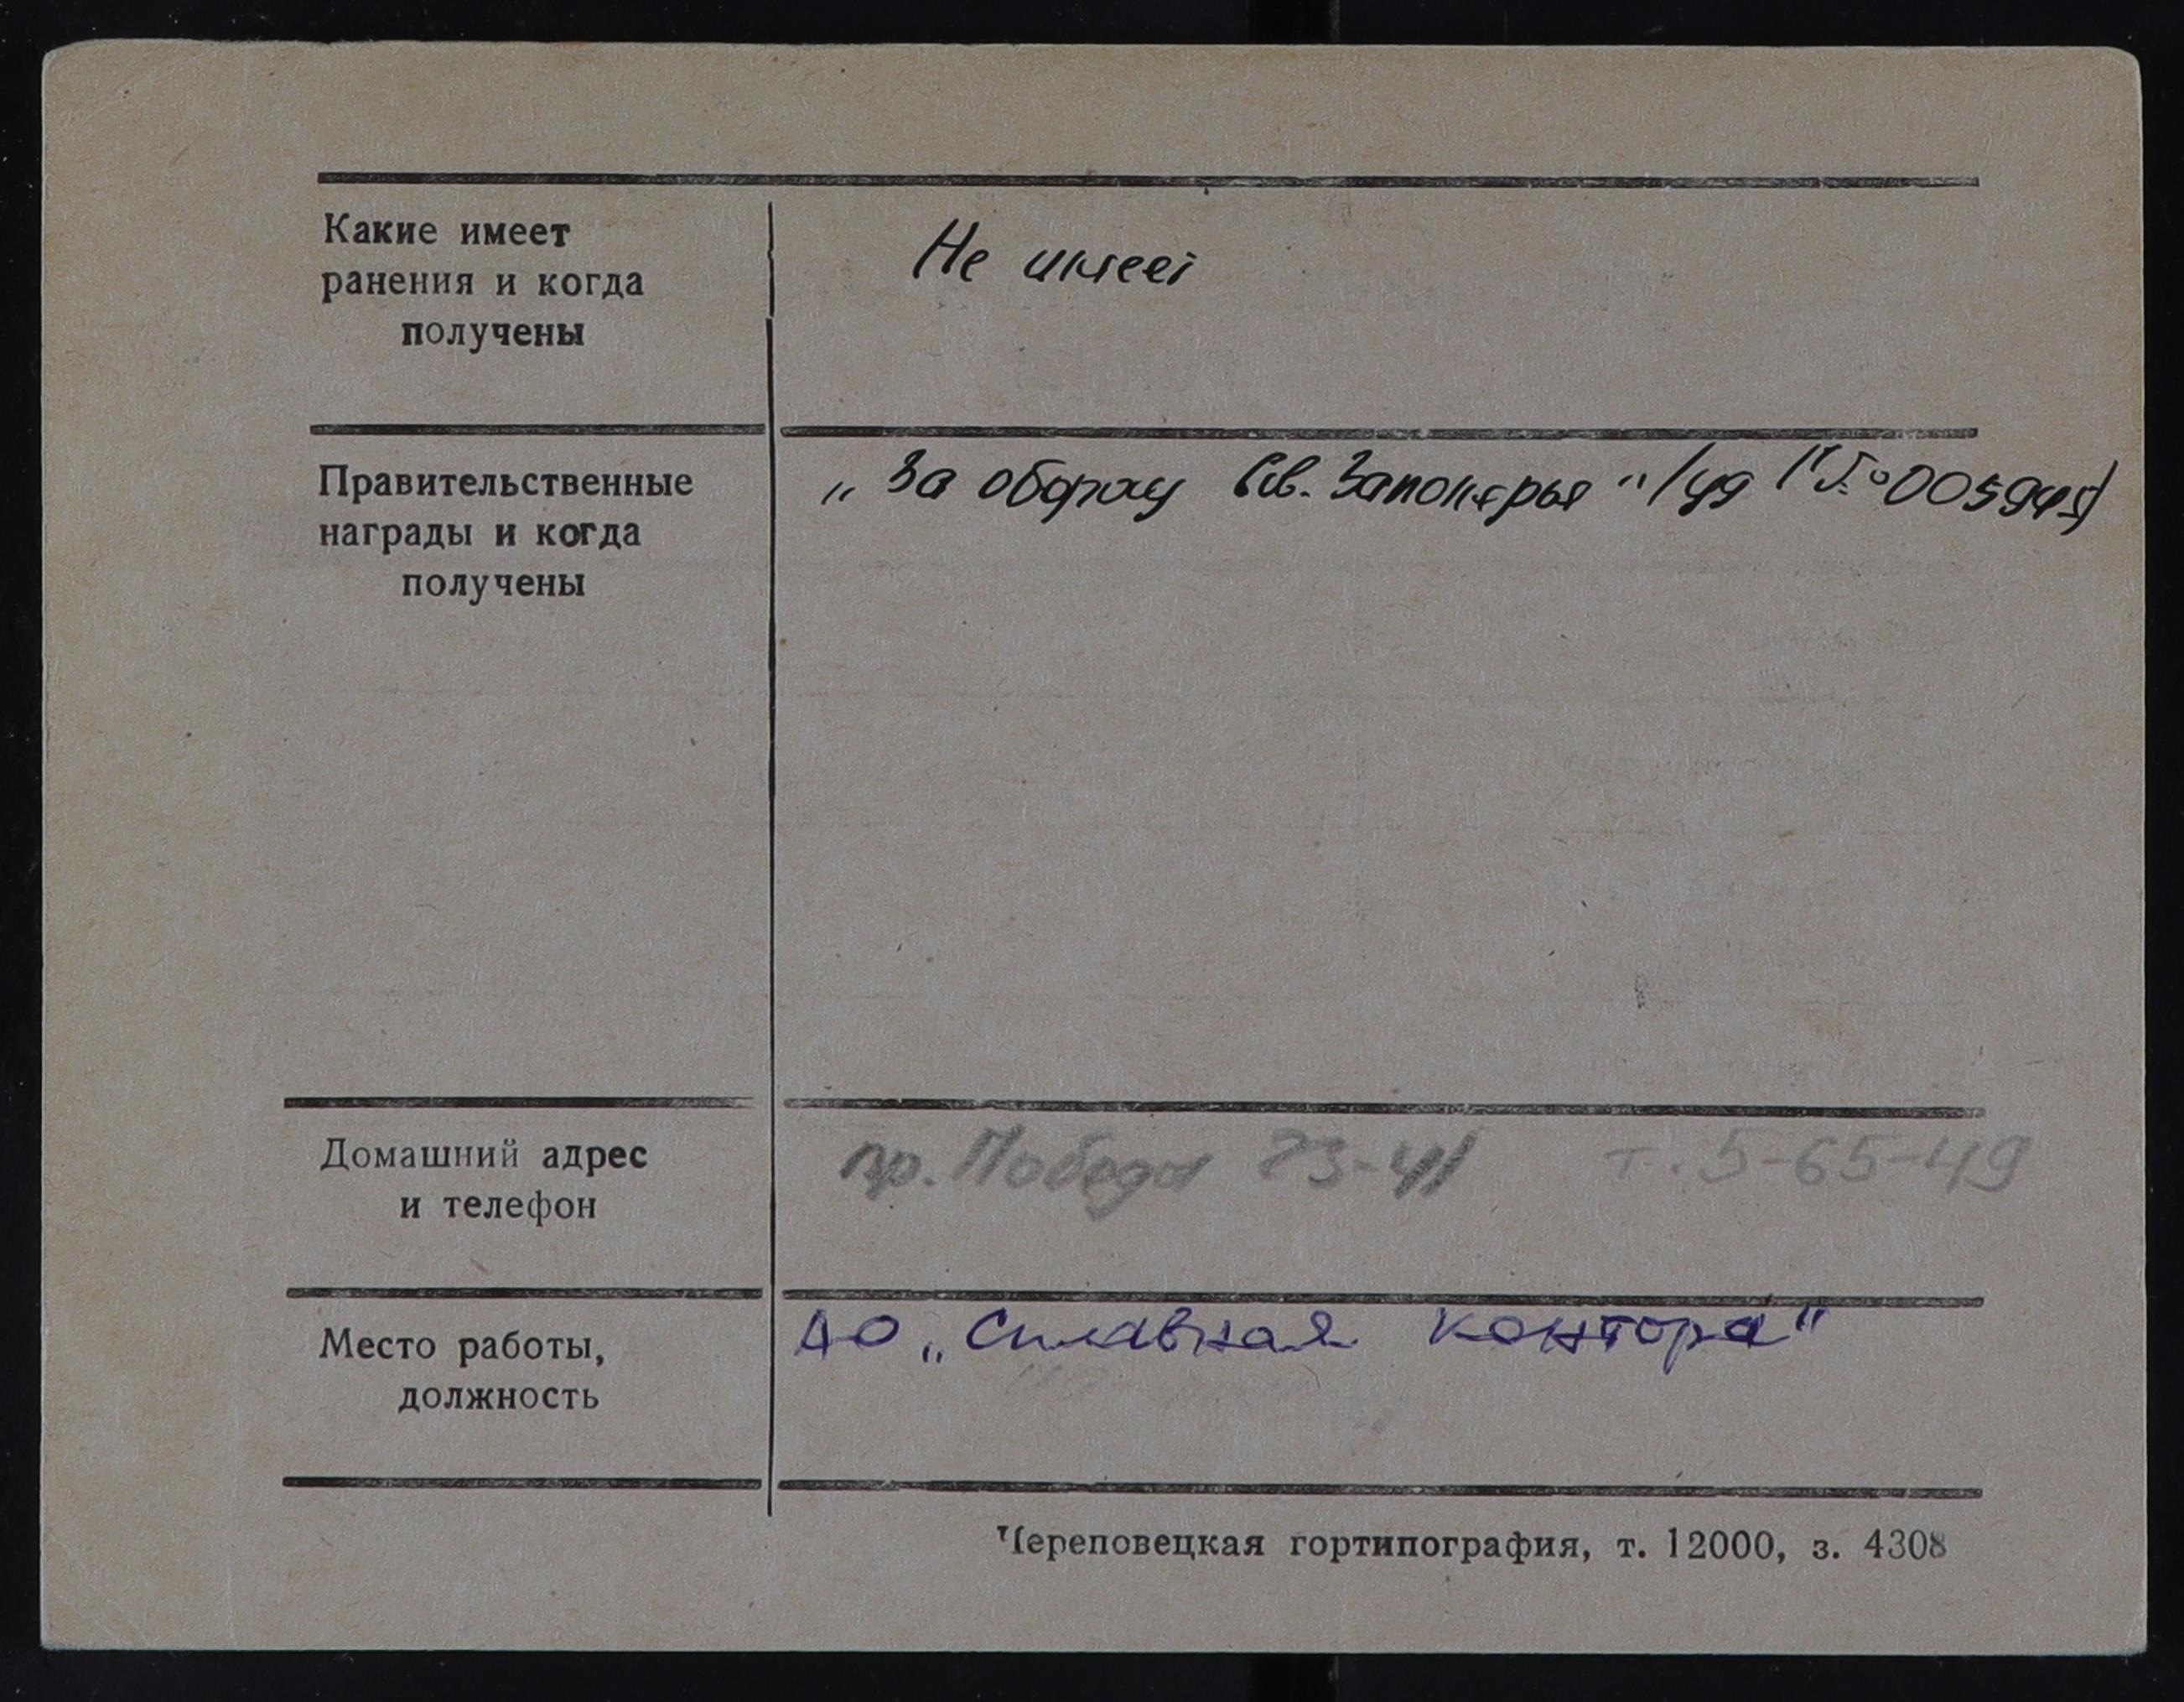 Какие имеет
ранения и когда
получены
Не имеет
Правительственные
награды и когда
получены
„За оборону Сов. Заполярья“ /уд № 005945/
Домашний адрес
и телефон
пр. Победы 73-41 т. 5-65-49
Место работы,
должность
АО „Сплавная контора“
Череповецкая гортипография, т. 12000, з. 4308